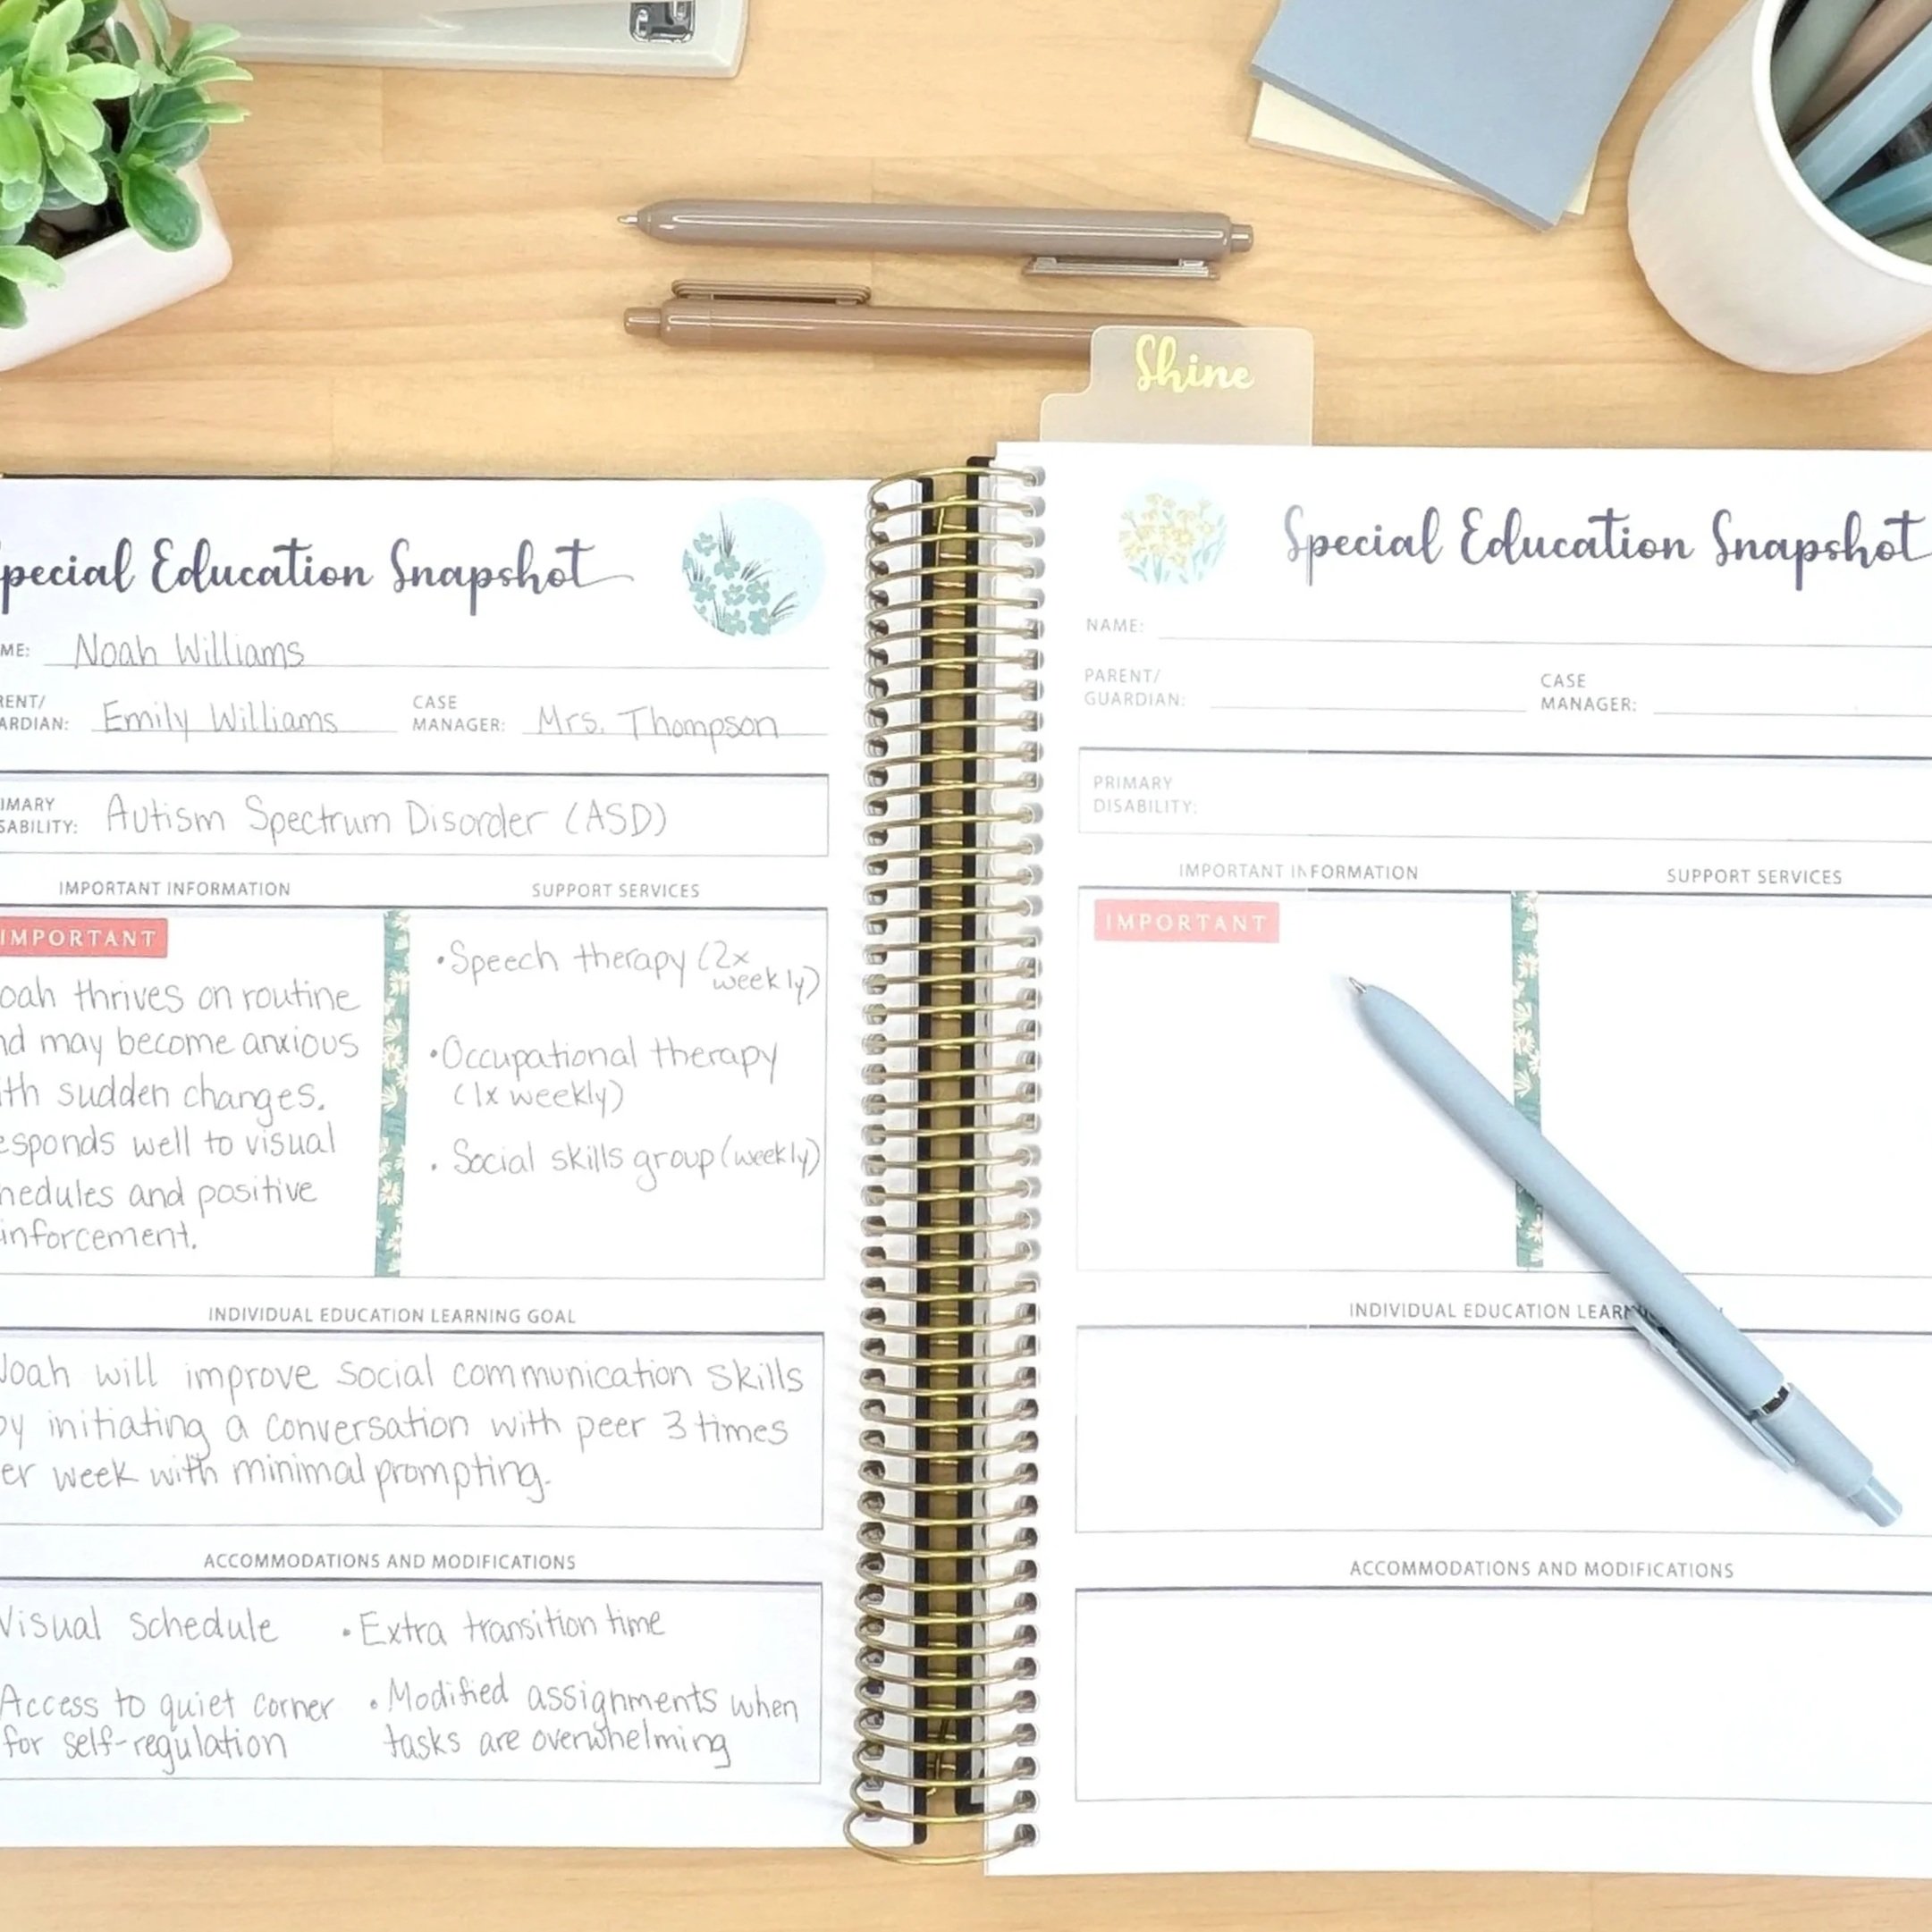 Shine
pecial Education Snapshot
ME: Noah Williams
RENT/
ARDIAN: Emily Williams
CASE
MANAGER: Mrs. Thompson
IMARY
SABILITY: Autism Spectrum Disorder (ASD)
IMPORTANT INFORMATION
IMPORTANT
oah thrives on routine
nd may become anxious
ith sudden changes.
esponds well to visual
hedules and positive
inforcement.
SUPPORT SERVICES
•Speech therapy (2x
weekly)
•Occupational therapy
(1x weekly)
• Social skills group (weekly)
INDIVIDUAL EDUCATION LEARNING GOAL
Noah will improve social communication skills
by initiating a conversation with peer 3 times
er week with minimal prompting.
ACCOMMODATIONS AND MODIFICATIONS
Visual Schedule
Access to quiet corner
for self-regulation
• Extra transition time
• Modified assignments when
tasks are overwhelming
Special Education Snapshot
NAME:
PARENT/
GUARDIAN:
CASE
MANAGER:
PRIMARY
DISABILITY:
IMPORTANT INFORMATION
IMPORTANT
SUPPORT SERVICES
INDIVIDUAL EDUCATION LEARN
ACCOMMODATIONS AND MODIFICATIONS